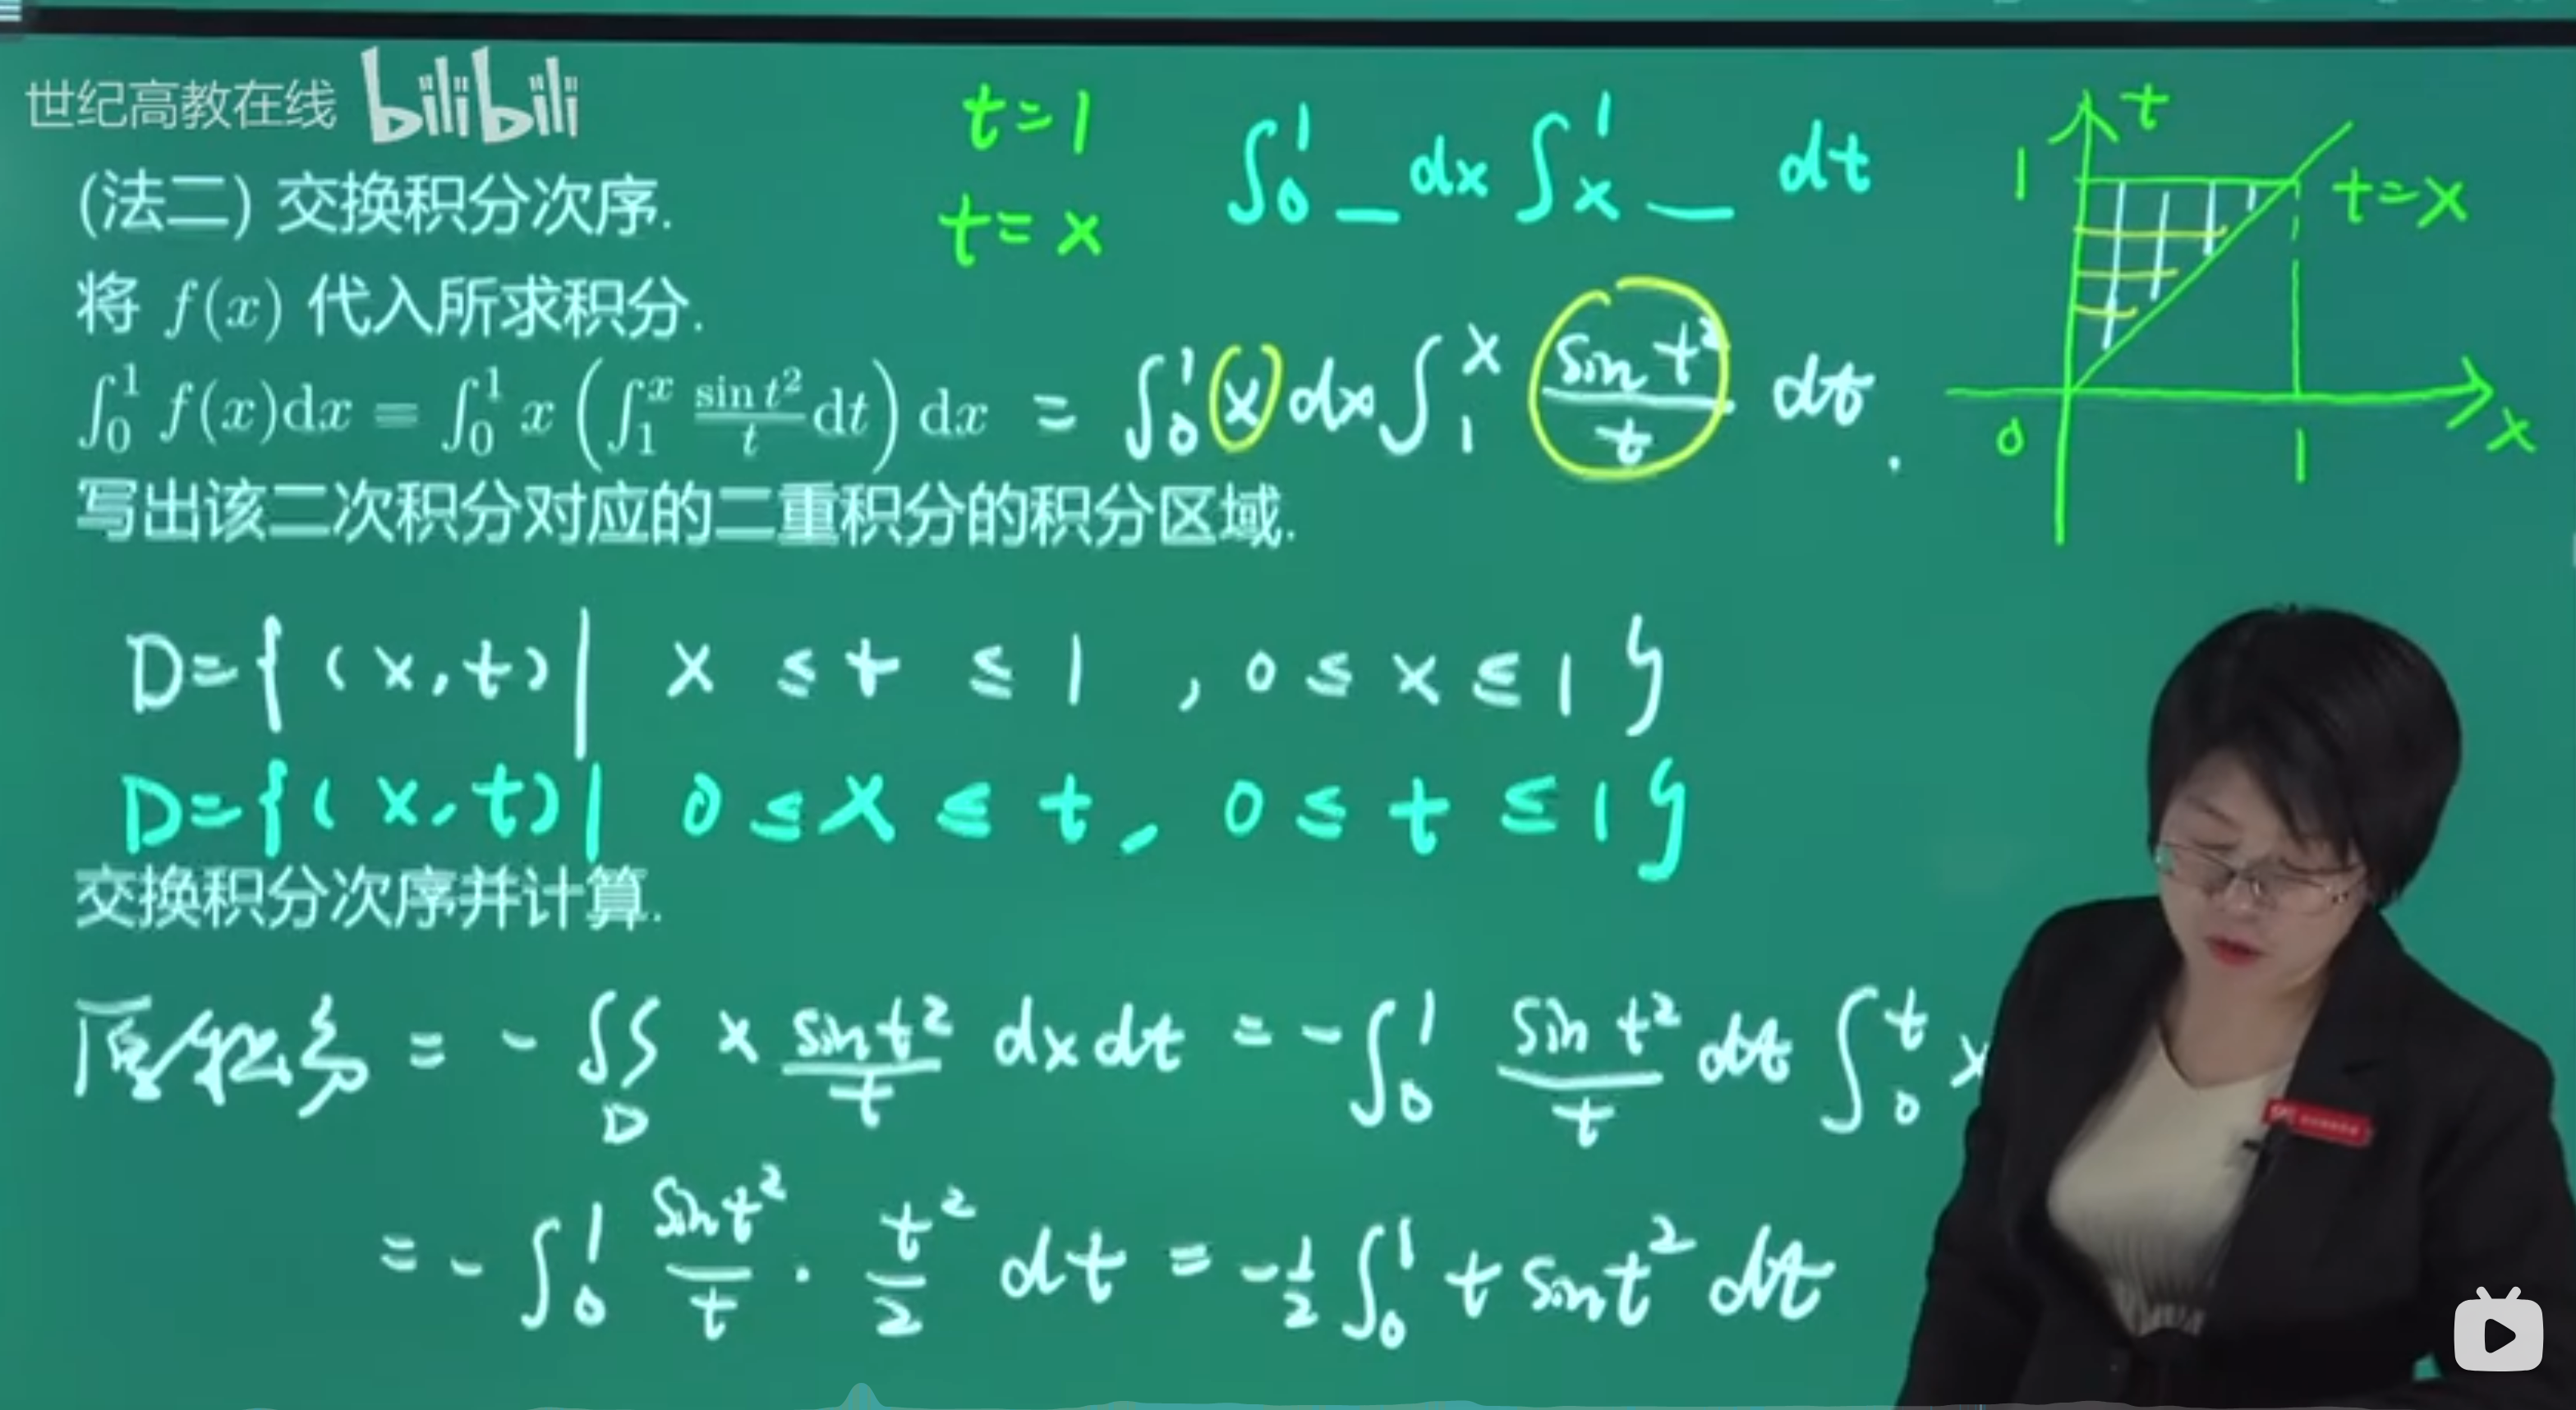 世纪高教在线 bilibili
t=1
t=x
∫₀¹ _ dx ∫ₓ¹ _ dt
t
1
t=x
0
1
x
(法二) 交换积分次序.
将 f(x) 代入所求积分.
∫₀¹ f(x)dx = ∫₀¹ x (∫₁ˣ sin t²/t dt) dx = ∫₀¹ x dx ∫₁ˣ sin t²/t dt.
写出该二次积分对应的二重积分的积分区域.
D={(x,t)| x ≤ t ≤ 1, 0 ≤ x ≤ 1}
D={(x,t)| 0 ≤ x ≤ t, 0 ≤ t ≤ 1}
交换积分次序并计算.
原积分 = - ∬_D x sin t²/t dxdt = - ∫₀¹ sin t²/t dt ∫₀ᵗ x
= - ∫₀¹ sin t²/t · t²/2 dt = - 1/2 ∫₀¹ t sin t² dt